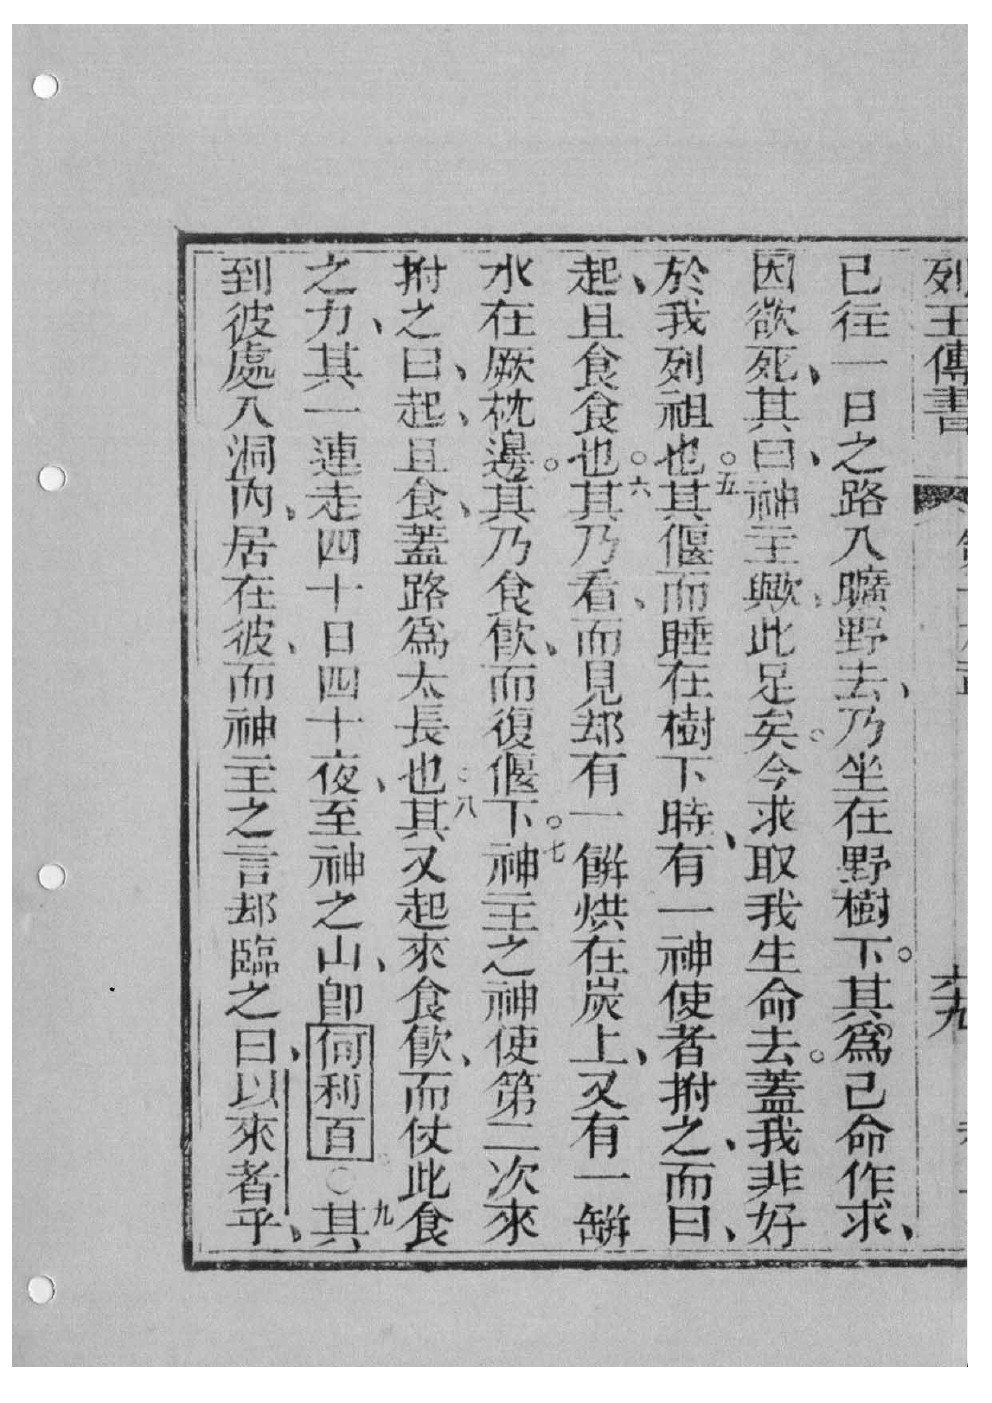 列王傳書 六九
已往一日之路入曠野去、乃坐在野樹下。其爲己命作求、
因欲死、其曰、神主歟、此足矣。今求取我生命去。蓋我非好
於我列祖也。五其偃而睡在樹下時、有一神使者拊之、而曰、
起、且食食也。六其乃看、而見却有一餅烘在炭上、又有一缾
水在厥枕邊。其乃食飲、而復偃下。七神主之神使第二次來
拊之曰、起、且食、蓋路爲太長也。八其又起來食飲、而仗此食
之力、其一連走四十日四十夜、至神之山、即何利百。○九其
到彼處入洞內、居在彼、而神主之言却臨之曰、以來者乎、